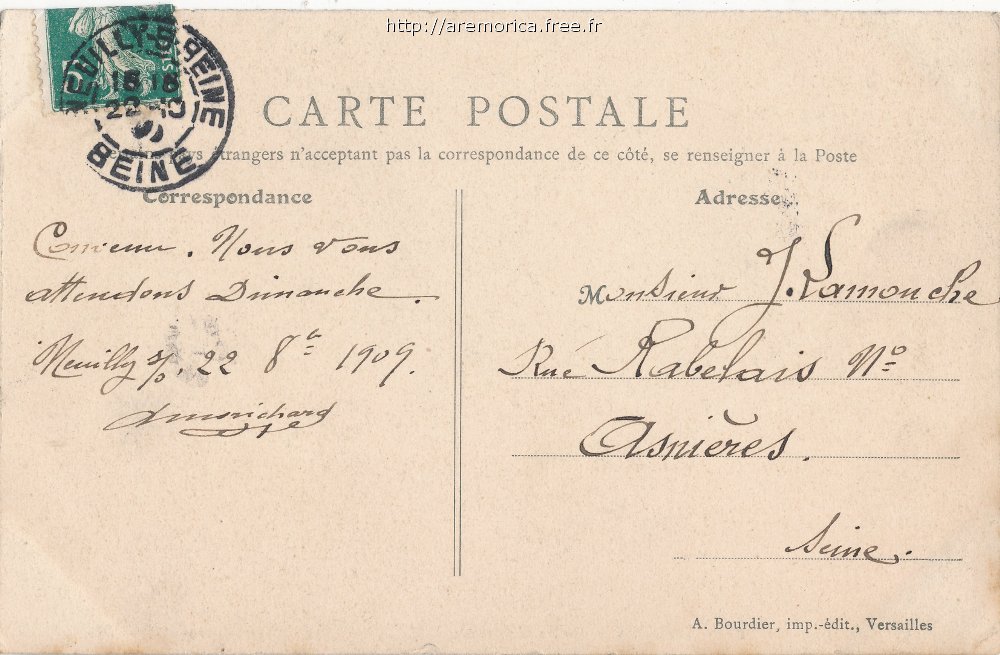 http://aremorica.free.fr
NEUILLY-S-SEINE
18 18
22 - 10
09
SEINE
CARTE POSTALE
étrangers n'acceptant pas la correspondance de ce côté, se renseigner à la Poste
Correspondance
Convenu. Nous vous
attendons Dimanche.
Neuilly s/s. 22 8bre 1909.
Adresse
Monsieur J. Lamouche
Rue Rabelais No
Asnières.
Seine.
A. Bourdier, imp.-édit., Versailles